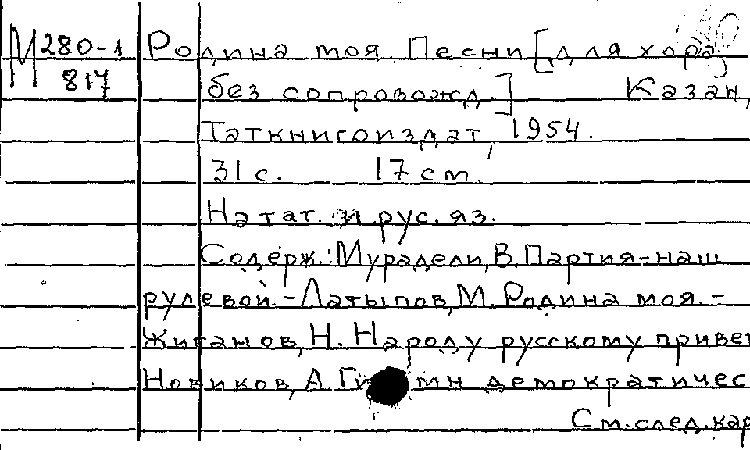 М 280-1 Родина моя Песни [для хора
817 без сопровожд.] Казан,
Таткнигоиздат, 1954.
31 с. 17 см.
На тат. и рус. яз.
Содерж.: Мурадели, В. Партия-наш
рулевой.-Латыпов, М. Родина моя.-
Жиганов, Н. Народу русскому привет
Новиков, А. Гимн демократичес
См. след. кар